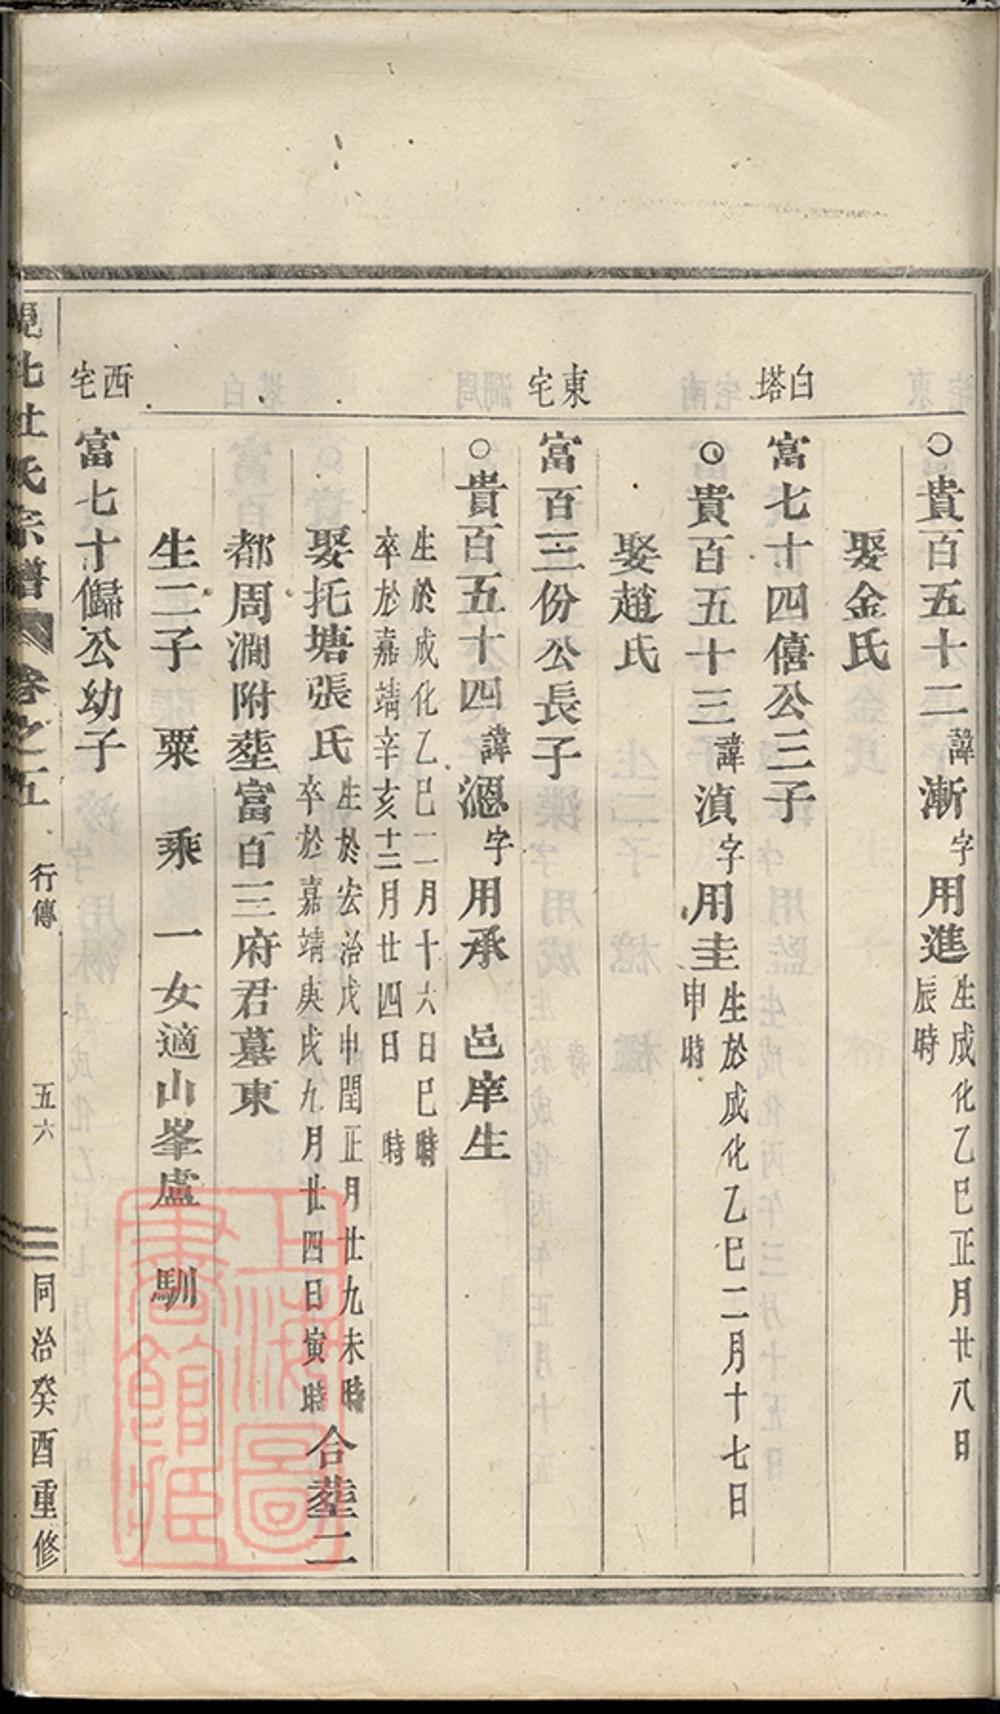 ○貴百五十二諱漸字用進生成化乙巳正月廿八日辰時
娶金氏
白塔
富七十四僖公三子
○貴百五十三諱湞字用圭生於成化乙巳二月十七日申時
娶趙氏
東宅
富百三份公長子
○貴百五十四諱漗字用承 邑庠生
生於成化乙巳二月十六日巳時
卒於嘉靖辛亥十二月廿四日 時
娶托塘張氏生於宏治戊申閏正月廿九未時卒於嘉靖庚戌九月廿四日寅時合塟二
都周澗附塟富百三府君墓東
生二子 粟 乘 一女適山峯盧 馴
西宅
富七十㱕公幼子
峴北杜氏宗譜 卷之五 行傳 五六 同治癸酉重修
上海圖書館藏